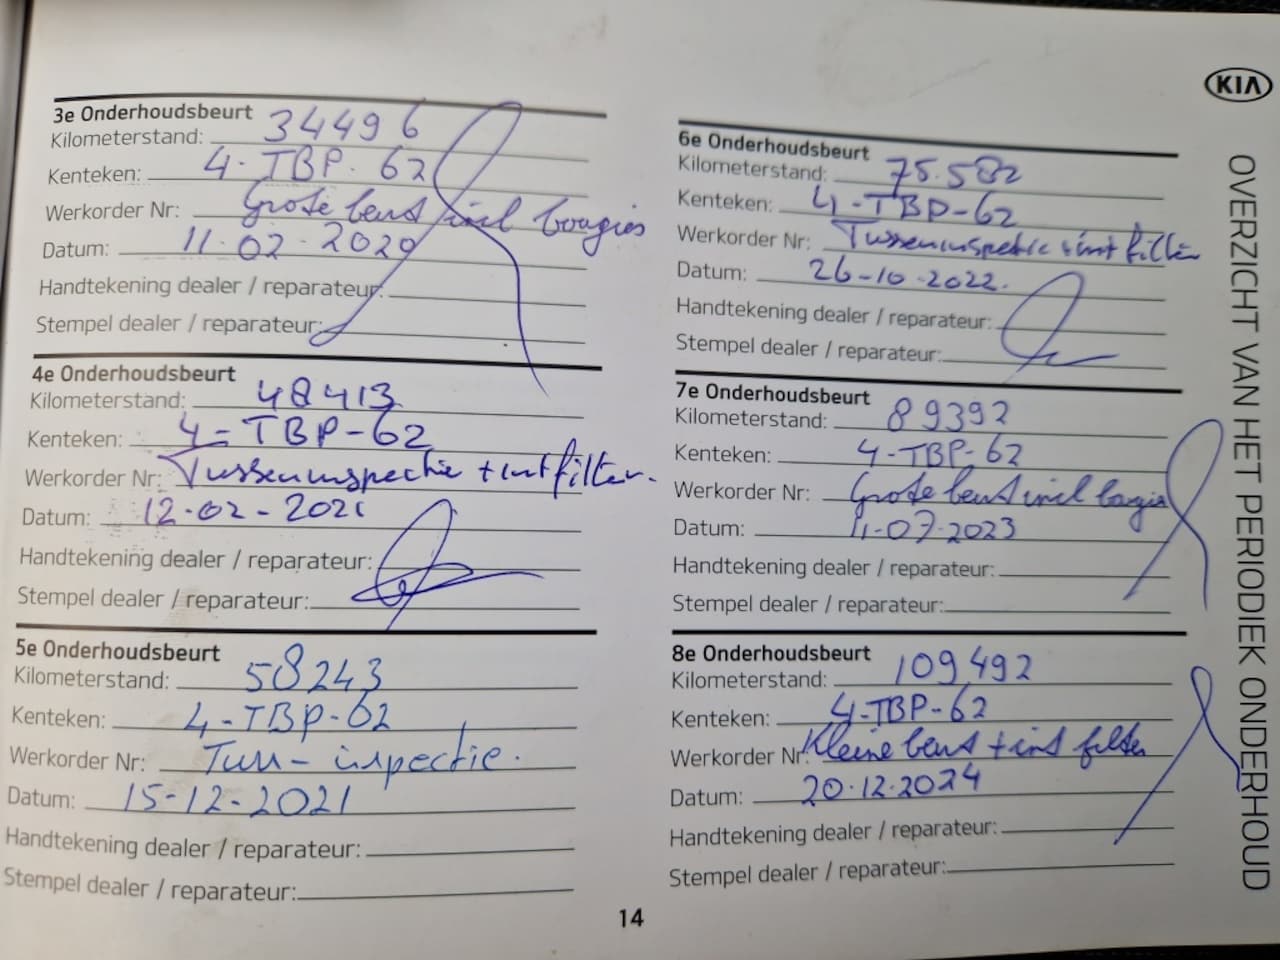 3e Onderhoudsbeurt
Kilometerstand: 34496
Kenteken: 4-TBP-62
Werkorder Nr: Grote beurt incl bougies
Datum: 11-02-2020
Handtekening dealer / reparateur:
Stempel dealer / reparateur:
4e Onderhoudsbeurt
Kilometerstand: 48413
Kenteken: 4-TBP-62
Werkorder Nr: Tusseninspectie + intfilter.
Datum: 12-02-2021
Handtekening dealer / reparateur:
Stempel dealer / reparateur:
5e Onderhoudsbeurt
Kilometerstand: 58243
Kenteken: 4-TBP-62
Werkorder Nr: Tuss-inspectie.
Datum: 15-12-2021
Handtekening dealer / reparateur:
Stempel dealer / reparateur:
6e Onderhoudsbeurt
Kilometerstand: 75.582
Kenteken: 4-TBP-62
Werkorder Nr: Tusseninspectie + int filter
Datum: 26-10-2022.
Handtekening dealer / reparateur:
Stempel dealer / reparateur:
7e Onderhoudsbeurt
Kilometerstand: 89392
Kenteken: 4-TBP-62
Werkorder Nr: Grote beurt incl bougies
Datum: 11-07-2023
Handtekening dealer / reparateur:
Stempel dealer / reparateur:
8e Onderhoudsbeurt
Kilometerstand: 109492
Kenteken: 4-TBP-62
Werkorder Nr: Kleine beurt + int filter
Datum: 20.12.2024
Handtekening dealer / reparateur:
Stempel dealer / reparateur:
KIA
OVERZICHT VAN HET PERIODIEK ONDERHOUD
14